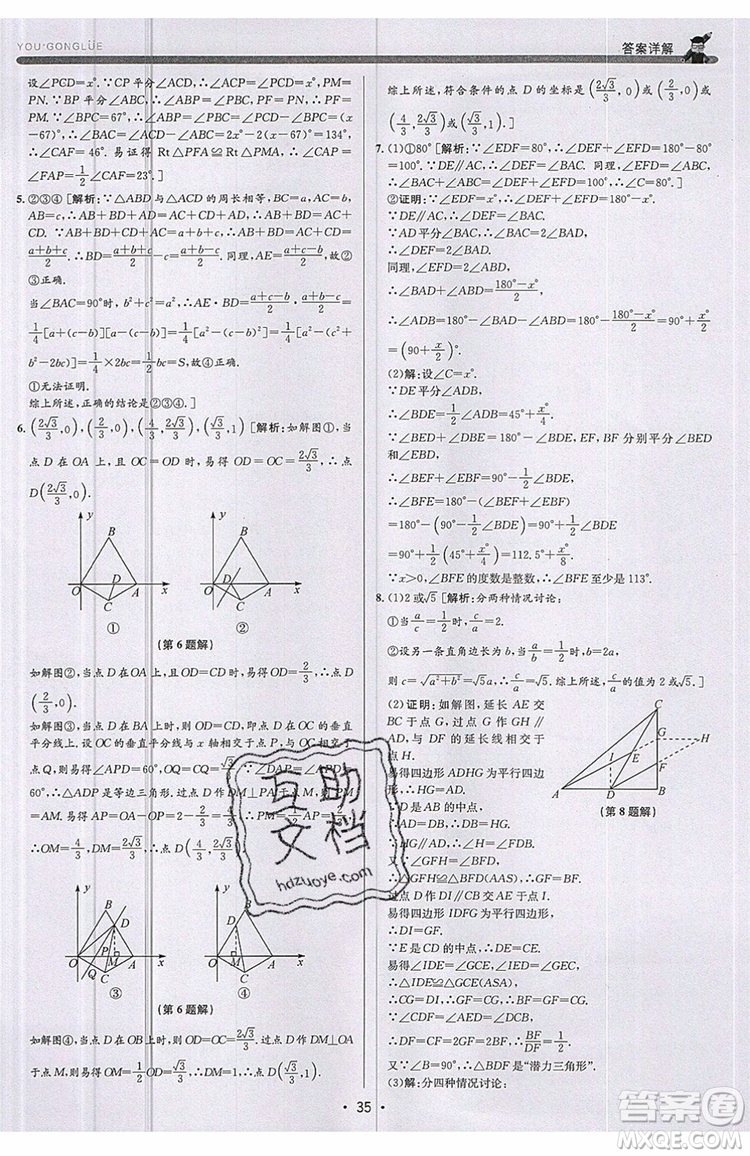 YOU·GONGLÜE
答案详解
设∠PCD=x°. ∵CP平分∠ACD,∴∠ACP=∠PCD=x°,PM=
PN. ∵BP平分∠ABC,∴∠ABP=∠PBC,PF=PN. ∴PF=
PM. ∵∠BPC=67°,∴∠ABP=∠PBC=∠PCD-∠BPC=(x
-67)°. ∴∠BAC=∠ACD-∠ABC=2x°-2(x-67)°=134°,
∴∠CAF=46°. 易证得Rt△PFA≌Rt△PMA,∴∠CAP=
∠FAP=1/2∠CAF=23°.]
5. ②③④ [解析:∵△ABD与△ACD的周长相等,BC=a,AC=b,
AB=c,∴AB+BD+AD=AC+CD+AD,∴AB+BD=AC+
CD. ∵AB+BD+CD+AC=a+b+c,∴AB+BD=AC+CD=
(a+b+c)/2. ∴BD=(a+b+c)/2-c=(a+b-c)/2. 同理,AE=(a+c-b)/2,故②
③正确.
当∠BAC=90°时,b²+c²=a²,∴AE·BD=(a+c-b)/2·(a+b-c)/2=
1/4[a+(c-b)][a-(c-b)]=1/4[a²-(c-b)²]=1/4[a²-(c²+
b²-2bc)]=1/4×2bc=1/2bc=S,故④正确.
①无法证明.
综上所述,正确的结论是②③④.]
6. (2√3/3,0),(2/3,0),(4/3,2√3/3),(2√3/3,1) [解析:如解图①,当
点D在OA上,且△AOC≌△ODC时,OD=OA=2√3/3. ∴点
D(2√3/3,0).
y
B
O
D
A
x
C
①
y
B
O
A
x
C
②
(第6题解)
如解图②,当点D在OA上,且OD=CD时,OD=2/3,∴点D
(2/3,0).
如解图③,当点D在AB上,且OD=CD时,即点D在OC的垂直
平分线上. 设OC的垂直平分线与x轴相交于点P,与OC相交于
点Q,则易得∠APD=60°=∠DAP,OP=2/3. ∴∠ADP=
60°,∴△DAP是等边三角形. 过点D作DM⊥PA于点M,则PM
=AM. 易得AP=OA-OP=2-2/3=4/3,∴PM=1/2AP=2/3,
∴OM=4/3,DM=2√3/3,∴点D(4/3,2√3/3).
y
B
D
O
P
M
A
x
Q
C
③
y
B
D
O
M
A
x
C
④
(第6题解)
如解图④,当点D在OB上时,OD=OC=2√3/3. 过点D作DM⊥OA
于点M,则易得OM=1/2OD=√3/3,DM=1,∴点D(√3/3,1).
综上所述,符合条件的点D的坐标是(2√3/3,0)或(2/3,0)或
(4/3,2√3/3)或(√3/3,1).]
7. (1)①80° [解析:∵∠EDF=80°,∴∠DEF+∠EFD=180°-80°=
100°. ∵DE∥AC,∴∠DEF=∠EAC=2∠BAC,同理,∠EFD=
2∠ABC,∴∠BAC+∠ABC=1/2(∠DEF+∠EFD)=50°.]
②证明:∵∠EDF=x°,∴∠DEF+∠EFD=180°-x°.
∵DE∥AC,∴∠DEF=∠EAC.
∵AD平分∠BAC,∴∠EAC=2∠BAD,
∴∠DEF=2∠BAD.
同理,∠EFD=2∠ABD,
∴2∠BAD+2∠ABD=180°-x°.
∴∠BAD+∠ABD=(180°-x°)/2.
∴∠ADB=180°-∠BAD-∠ABD=180°-(180°-x°)/2=90°+x°/2
=(90+x/2)°.
(2)解:设∠C=x°.
∵DE平分∠ADB,
∴∠BDE=1/2∠ADB=45°+x°/4.
∵∠BDE=∠BED,EF,BF分别平分∠BED,
∠EBD,
∴∠BEF+∠EBF=90°-1/2∠BDE.
∴∠BFE=180°-(∠BEF+∠EBF)
=180°-(90°-1/2∠BDE)
=90°+1/2(45°+x°/4)=112.5°+x°/8.
∵x>0,∠BFE的度数是整数,∴∠BFE至少是113°.
8. (1)2或√5 [解析:分两种情况讨论:
①当a/c=1/2时,c/a=2.
②设另一条直角边长为b,当a/b=1/2时,b=2a,
则c=√(a²+b²)=√5a,∴c/a=√5. 综上所述,c/a的值为2或√5.]
(2)证明:如解图,延长AE交
BC于点G,过点G作GH∥
AD,与DF的延长线相交于点
H,连接DE.
易得四边形ADHG为平行四边形,
∴AD=HG.
∵CD为中线,
∴AD=BD,∴BD=HG.
∵GH∥AB,∴∠H=∠FDB.
又∵∠GFH=∠BFD,
∴△GFH≌△BFD(AAS),
∴GF=BF. 过点D作DI∥BC交AE于点I.
易得四边形IDFG为平行四边形,
∴DI=GF.
∵E是CD的中点,∴DE=CE.
易得∠IDE=∠GCE,∠IED=∠GEC,
∴△IDE≌△GCE(ASA),
∴DI=CG,∴CG=GF=BF.
∴CF=DF=2GF=2BF,∴BF/DF=1/2.
又∵∠B=90°,∴△BDF是“潜力三角形”.
(3)解:分四种情况讨论:
C
G
H
E
I
F
A
D
B
(第8题解)
互助
文档
hdzuoye.com
答案圈
MXQE.COM
· 35 ·